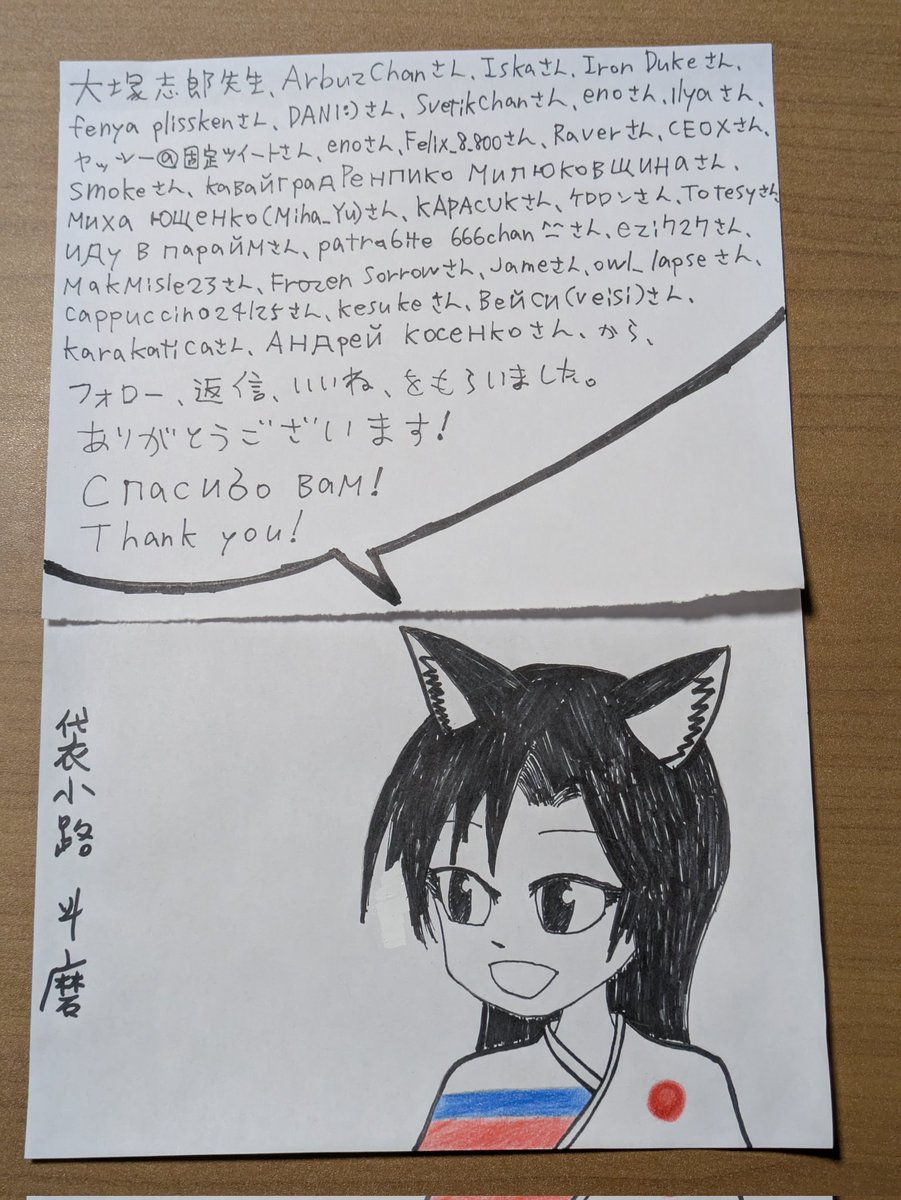 大塚志郎先生、ArbuzChanさん、Iskaさん、Iron Dukeさん、
fenya plisskenさん、DANI:)さん、SvetikChanさん、enoさん、ilyaさん、
ヤッシー@固定ツイートさん、enoさん、Felix_8.800さん、Raverさん、CEOXさん、
Smokeさん、КавайградРенпико Милюковщинаさん、
Миха Ющенко(Miha_Yu)さん、KAPACUKさん、ケロロンさん、Totesyさん、
иду в параймさん、patrabite 666chan ^^さん、ezi727さん、
MakMisle23さん、Frozen Sorrowさん、Jameさん、owl_lapseさん、
cappuccino24/25さん、kesukeさん、Вейси(veisi)さん、
karakaticaさん、Андрей Косенкоさん、から、
フォロー、返信、いいね、をもらいました。
ありがとうございます!
Спасибо вам!
Thank you!
袋小路 斗磨